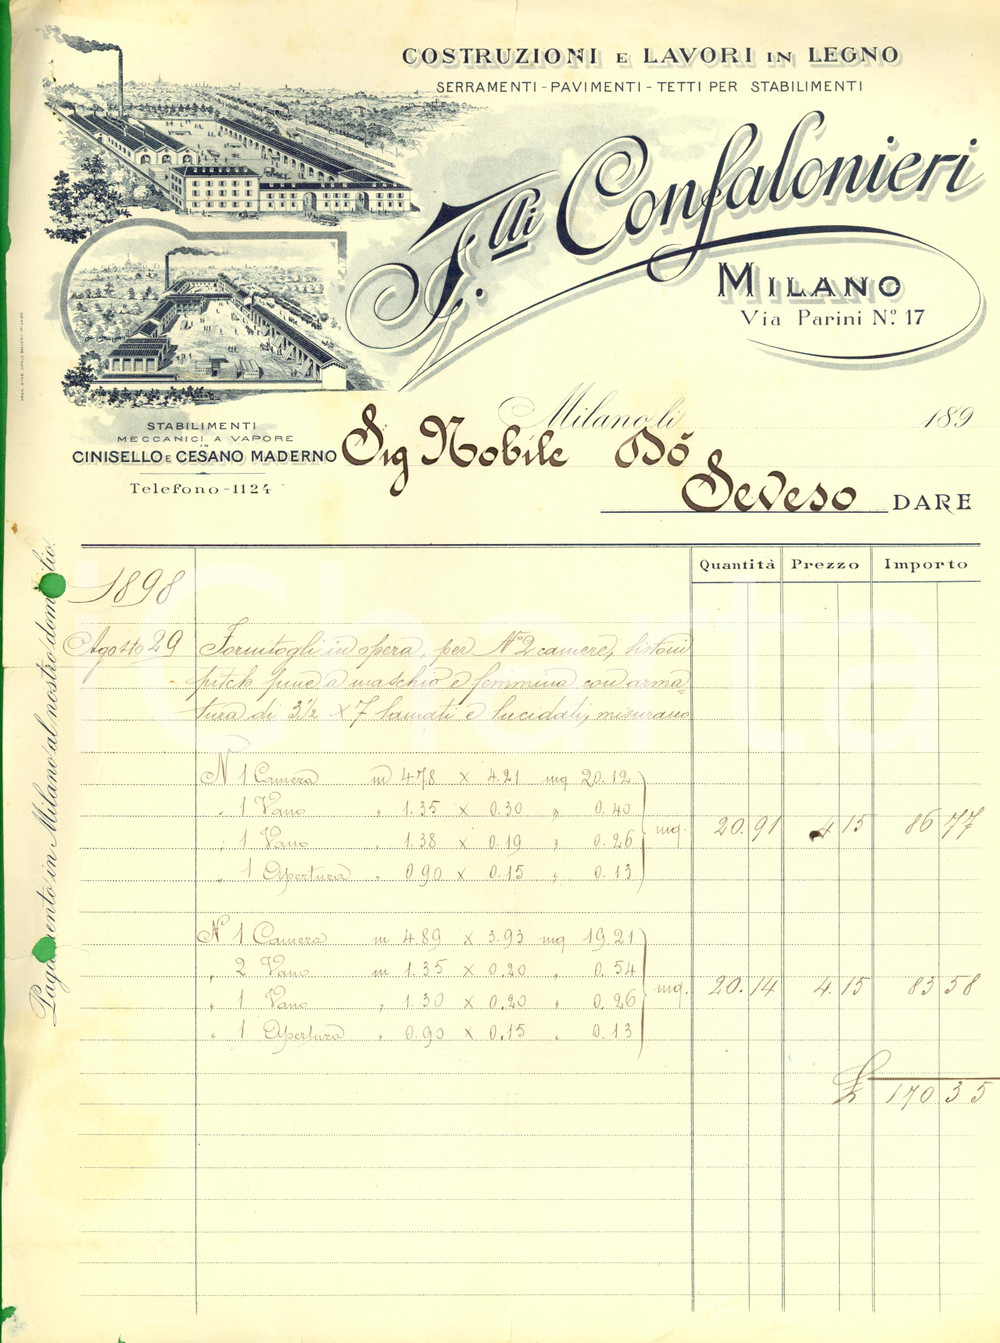 COSTRUZIONI E LAVORI IN LEGNO
SERRAMENTI - PAVIMENTI - TETTI PER STABILIMENTI
F.lli Confalonieri
MILANO
Via Parini No. 17
STABILIMENTI
MECCANICI A VAPORE
IN
CINISELLO E CESANO MADERNO
Telefono - 1124
Milano li 189
Sig Nobile Dó
Seveso DARE
Pagamento in Milano al nostro domicilio.
Quantità Prezzo Importo
1898
Agosto 29 Fornitogli in opera, per No 2 camere, listoni
pitch pine a maschio e femmina con arma-
tura di 3 1/2 x 7 lamati e lucidati, misurano
N 1 Camera m 4.78 x 4.21 mq 20.12
" 1 Vano " 1.35 x 0.30 " 0.40
" 1 Vano " 1.38 x 0.19 " 0.26 mq. 20.91 4.15 86 77
" 1 Apertura " 0.90 x 0.15 " 0.13
N 1 Camera m 4.89 x 3.93 mq 19.21
" 2 Vano m 1.35 x 0.20 " 0.54
" 1 Vano " 1.30 x 0.20 " 0.26 mq. 20.14 4.15 83 58
" 1 Apertura " 0.90 x 0.15 " 0.13
£ 170 35